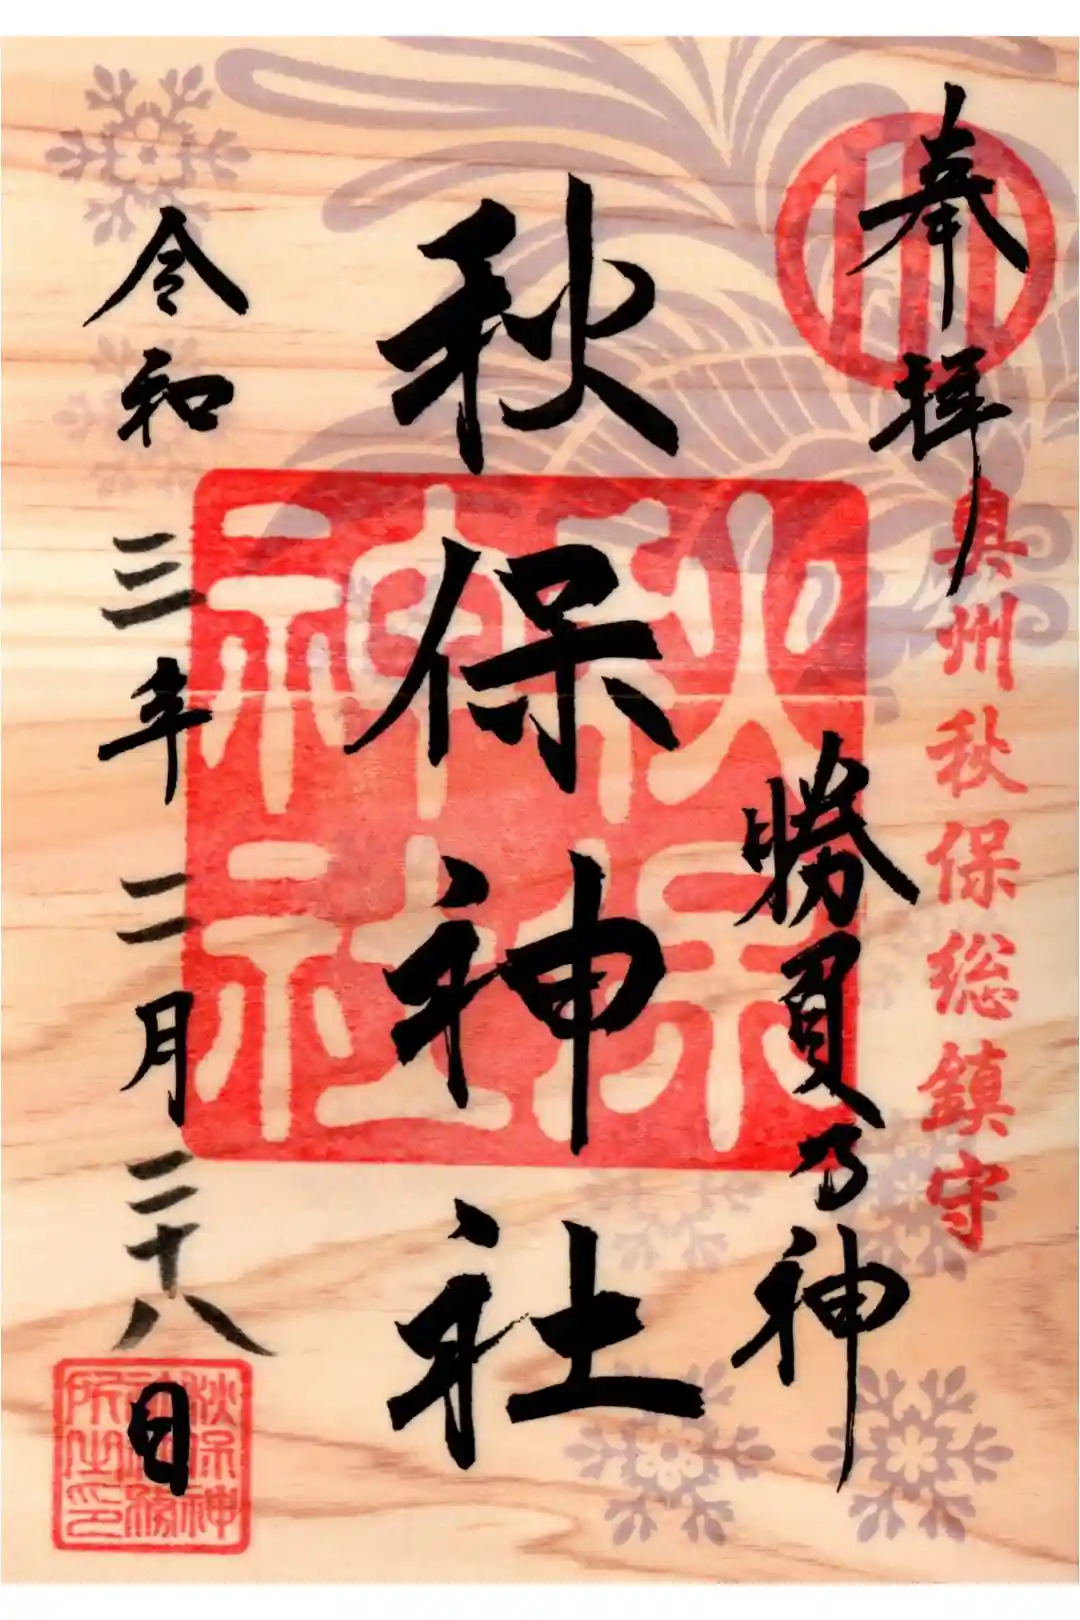 奉拝
奥州秋保総鎮守
勝負乃神
秋保神社
秋保神社
令和三年二月二十八日
秋保神社社務所之印